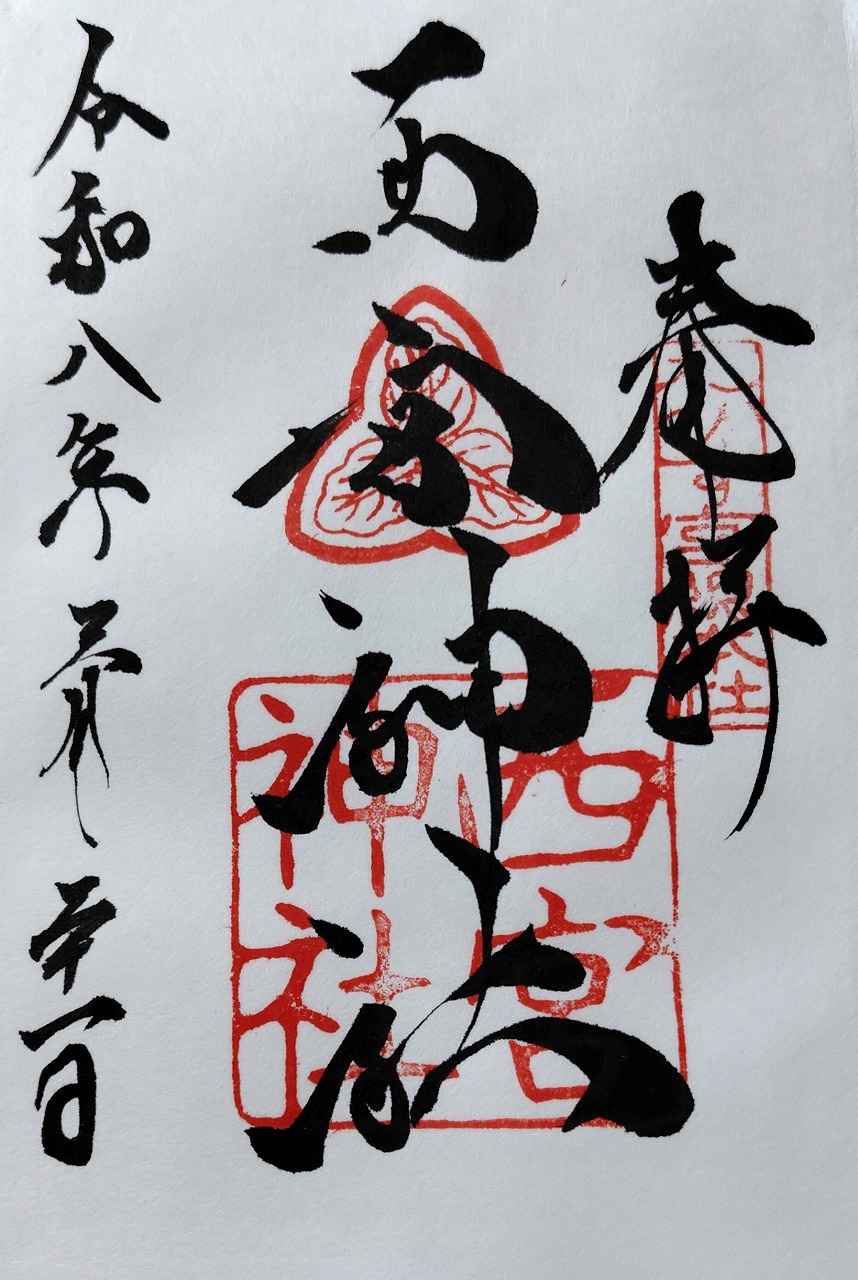 奉拝
西宮神社
令和八年三月二十一日
西宮
神社